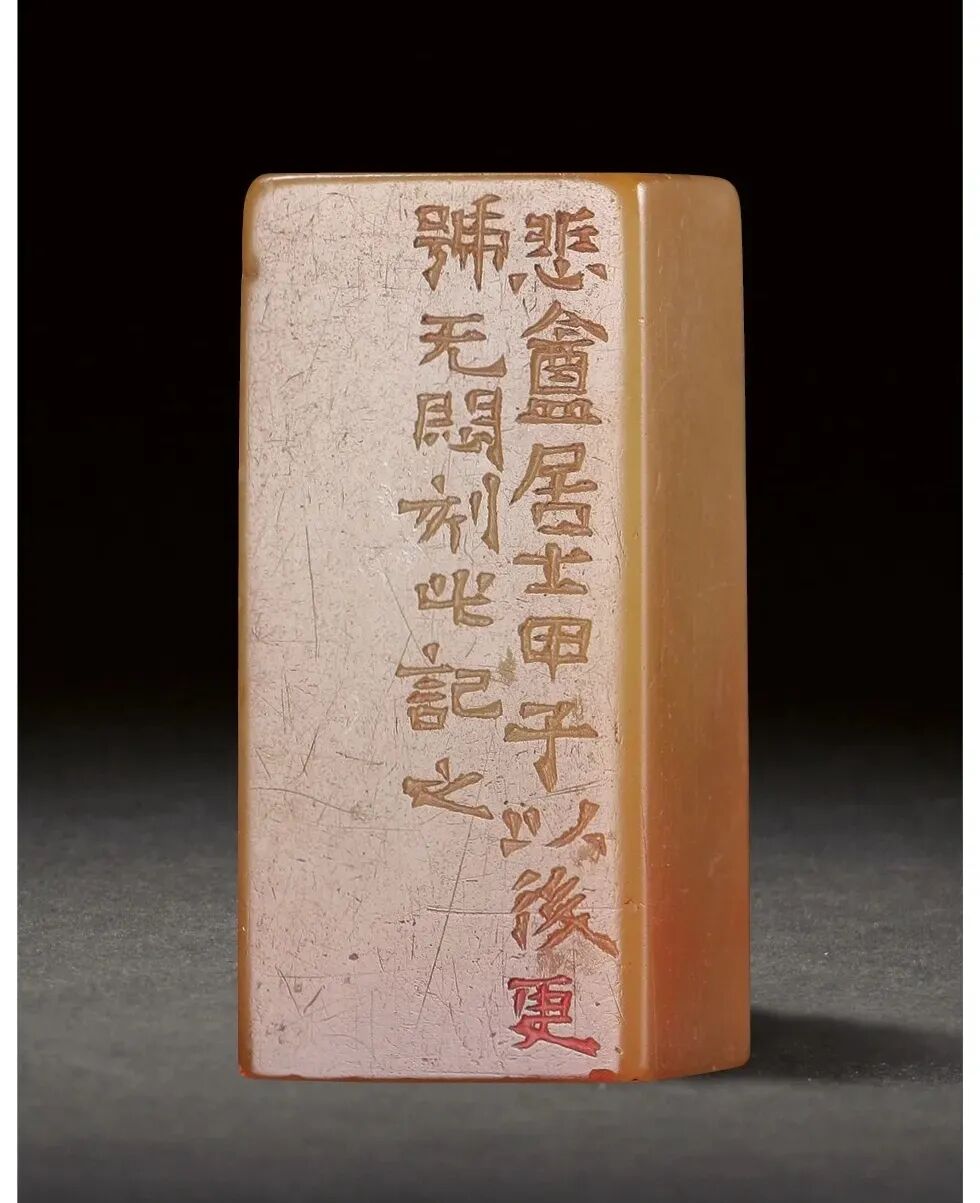 悲盦居士甲子以後更
號无悶刻此記之